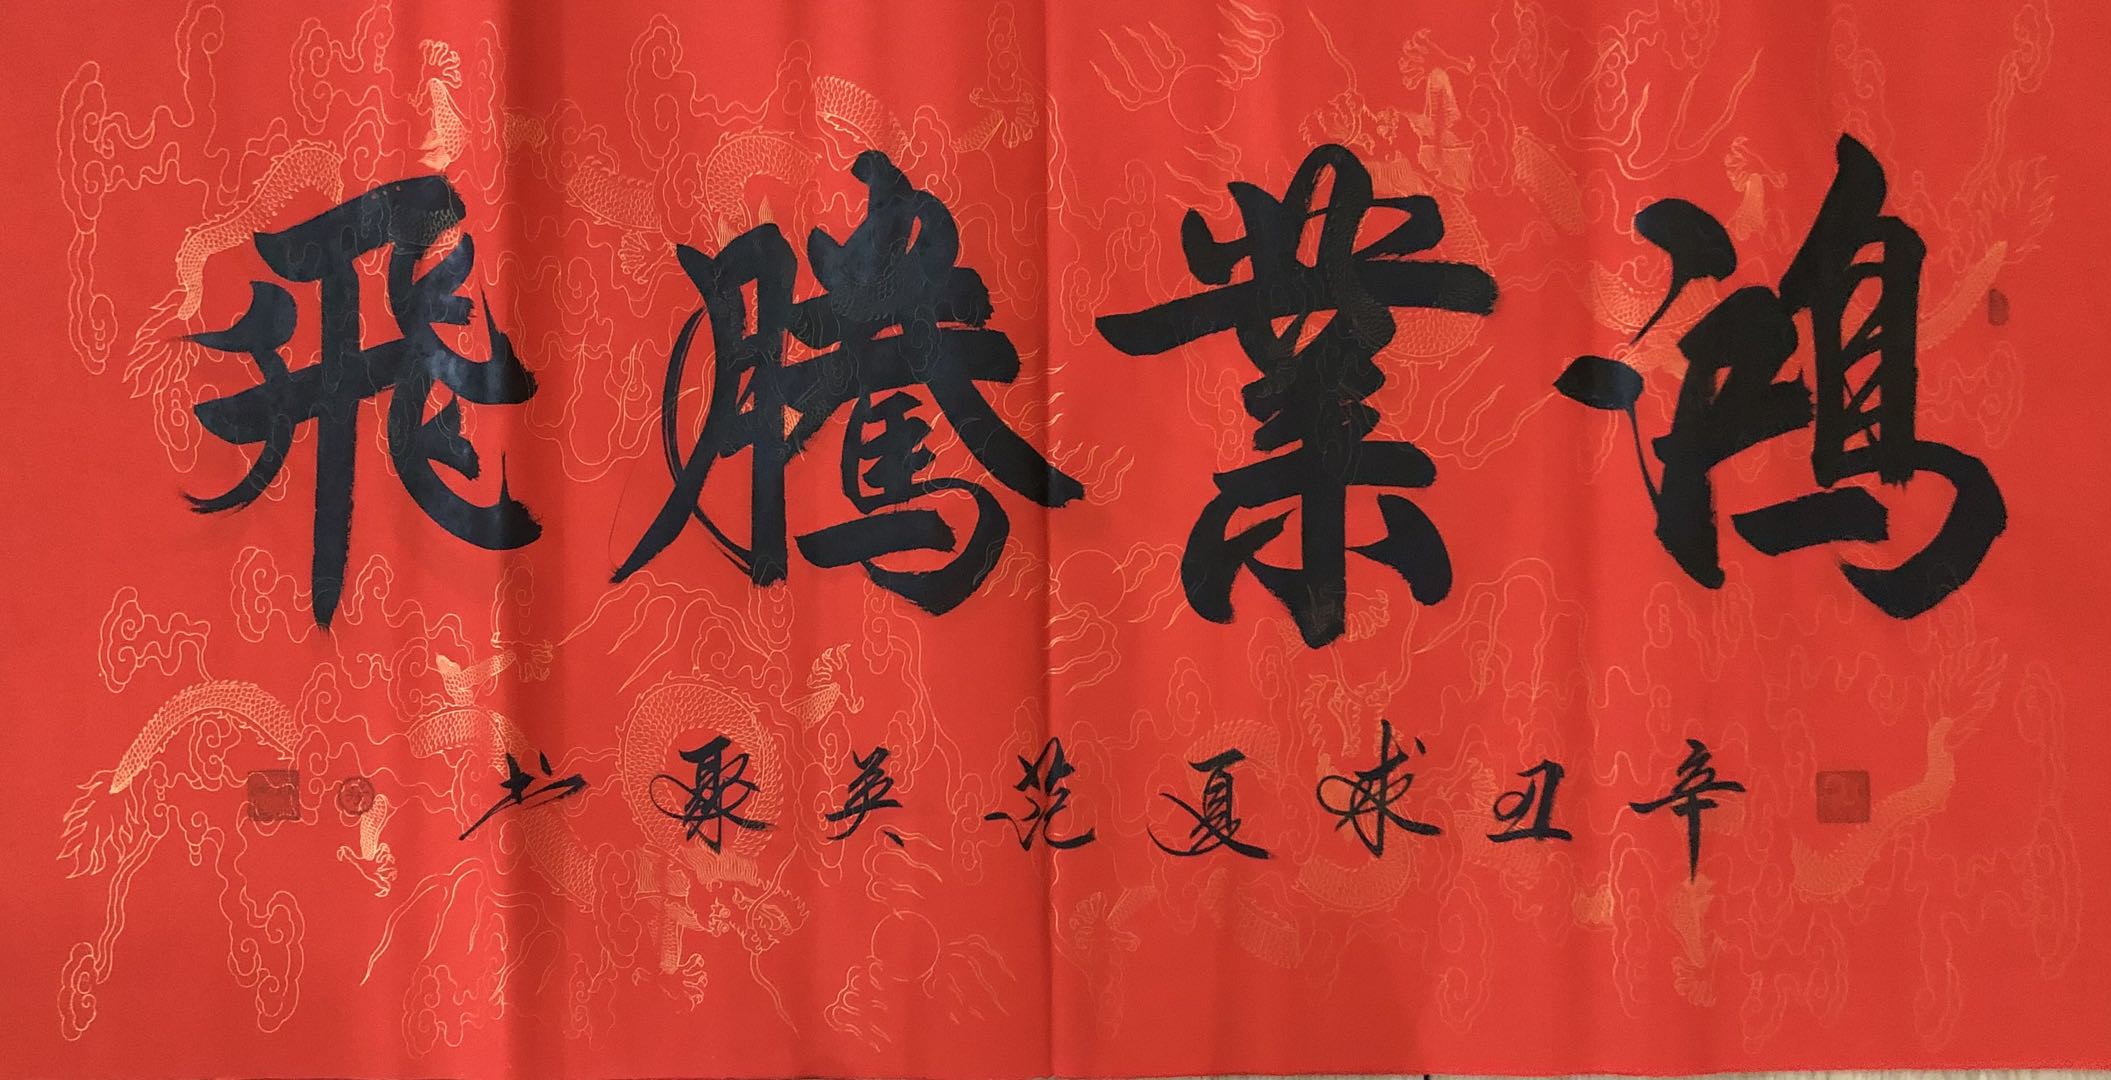 鴻業騰飛
辛丑球夏范英聚书